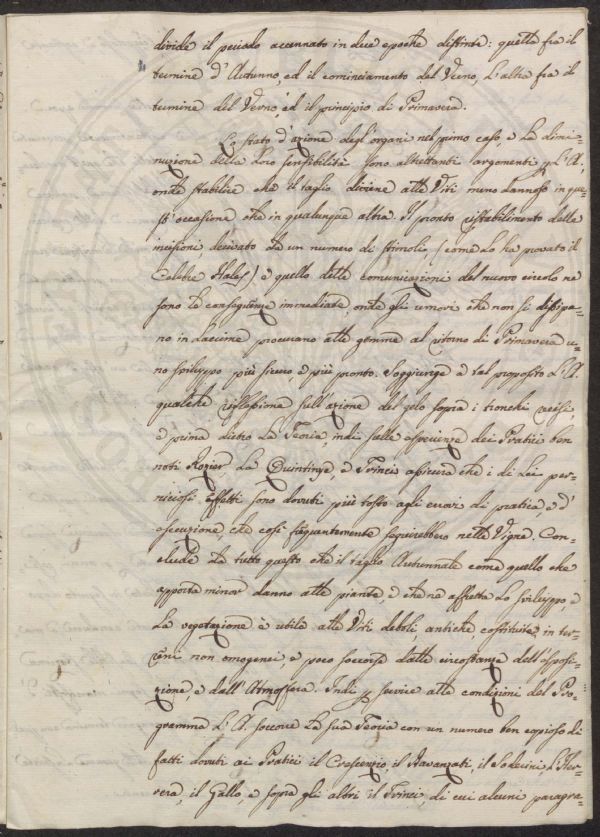 divide il periodo accennato in due epoche distinte: quella fra il
termine d'Autunno, ed il cominciamento del Verno, l'altra fra il
termine del Verno, ed il principio di Primavera.
Lo stato d'azione degl'organi nel primo caso, e la dimi=
nuzione della loro sensibilità sono altrettanti argomenti p. l'A,
onde stabilire che il taglio diviene alle Viti meno dannoso in que=
st'occasione che in qualunque altra. Il pronto ristabilimento delle
incisioni, derivato da un numero di stimoli, (come lo ha provato il
Celebre Hales) e quello delle comunicazioni del nuovo circolo ne
sono le conseguenze immediate, onde gli umori che non si dissipa=
no in lacrime procurano alle gemme al ritorno di Primavera u=
no sviluppo più sicuro, e più pronto. Soggiunge a tal proposito l'A.
qualche riflessione sull'azione del gelo sopra i tronchi recisi,
e prima dietro la Teoria, indi sulle esperienze dei Pratici ben
noti Rozier la Quintinye, e Trinci assicura che i di lei per=
niciosi effetti sono dovuti più tosto agli errori di pratica, e d'
esecuzione, che così frequentemente seguirebbero nelle Vigne. Con=
clude da tutto questo che il taglio Autunnale come quello che
apporta minor danno alle piante, e che ne affretta lo sviluppo, e
la vegetazione è utile alle Viti deboli, antiche costituite in ter=
reni non omogenei e poco soccorse dalle circostanze dell'esposi=
zione, e dall'Atmosfera. Indi p. servire alle condizioni del Pro=
gramma l'A. soccorre la sua Teoria con un numero ben copioso di
fatti dovuti ai Pratici il Crescenzio, il Davanzati, il Soderini, l'Her=
rera, il Gallo, e sopra gli altri il Trinci, di cui alcuni paragra=